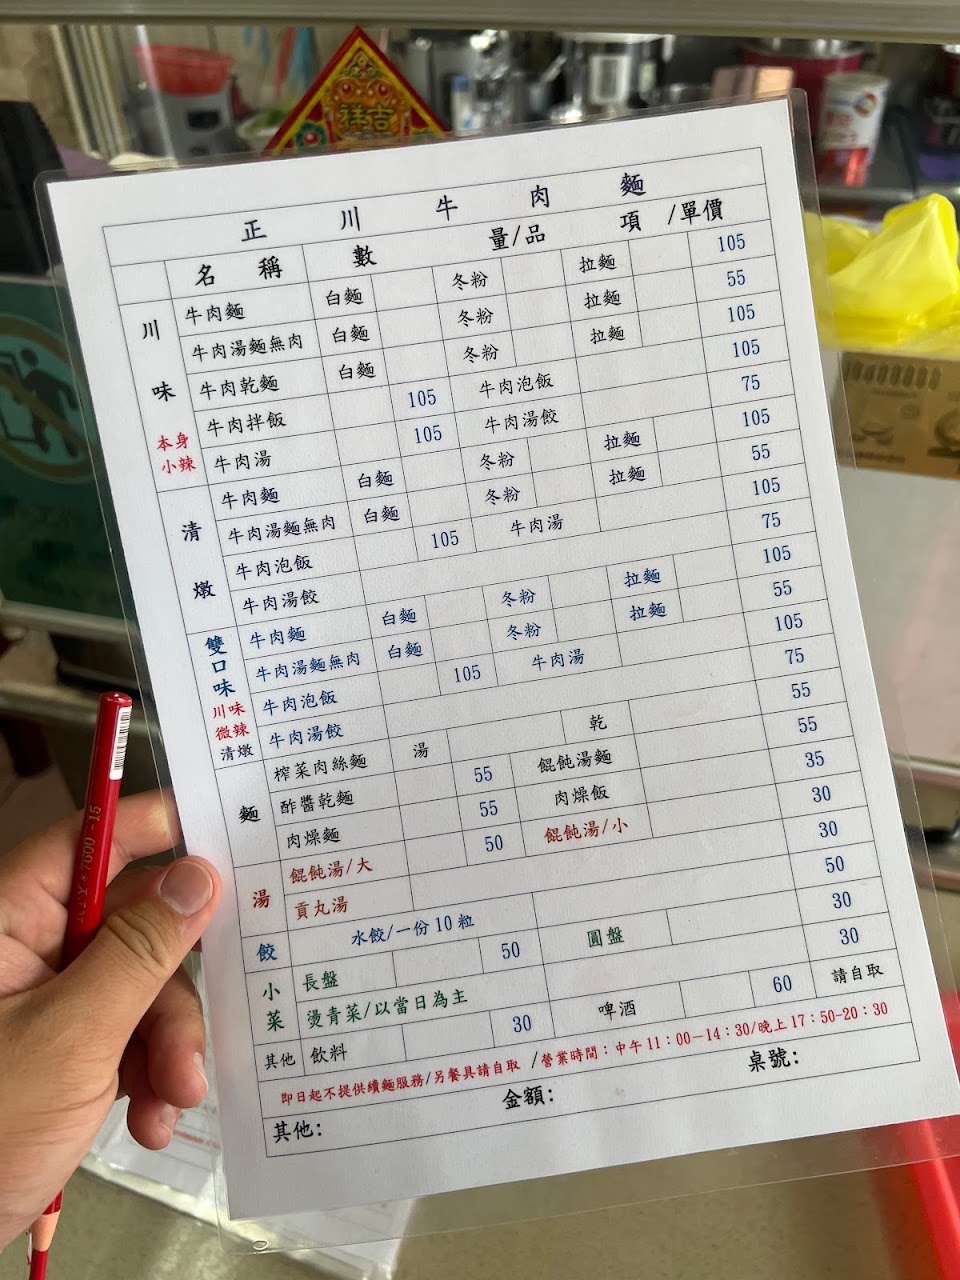 吉祥
正川牛肉麵
名稱 數量/品項/單價
川味
本身
小辣
牛肉麵 白麵 冬粉 拉麵 105
牛肉湯麵無肉 白麵 冬粉 拉麵 55
牛肉乾麵 白麵 冬粉 拉麵 105
牛肉拌飯 105 牛肉泡飯 105
牛肉湯 105 牛肉湯餃 75
清燉
牛肉麵 白麵 冬粉 拉麵 105
牛肉湯麵無肉 白麵 冬粉 拉麵 55
牛肉泡飯 105 牛肉湯 105
牛肉湯餃 75
雙口味
川味
微辣
清燉
牛肉麵 白麵 冬粉 拉麵 105
牛肉湯麵無肉 白麵 冬粉 拉麵 55
牛肉泡飯 105 牛肉湯 105
牛肉湯餃 75
麵
榨菜肉絲麵 湯 乾 55
酢醬乾麵 55 餛飩湯麵 55
肉燥麵 55 肉燥飯 35
湯
餛飩湯/大 50 餛飩湯/小 30
貢丸湯 30
餃 水餃/一份10粒 50
小菜
長盤 50 圓盤 30
燙青菜/以當日為主 30
其他 飲料 30 啤酒 60 請自取
即日起不提供續麵服務/另餐具請自取 /營業時間：中午11：00－14：30/晚上17：50-20：30
其他: 金額: 桌號: